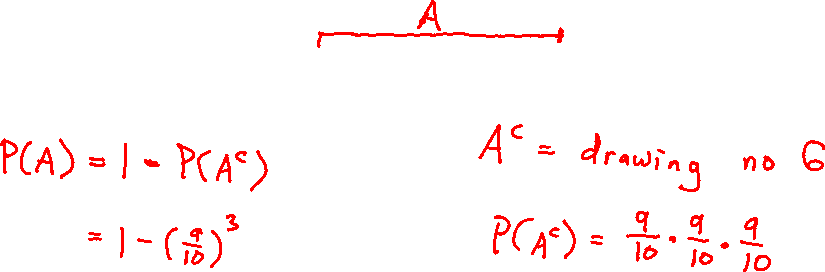 A
P(A) = 1 - P(Aᶜ)
= 1 - (9/10)³
Aᶜ = drawing no 6
P(Aᶜ) = 9/10 · 9/10 · 9/10